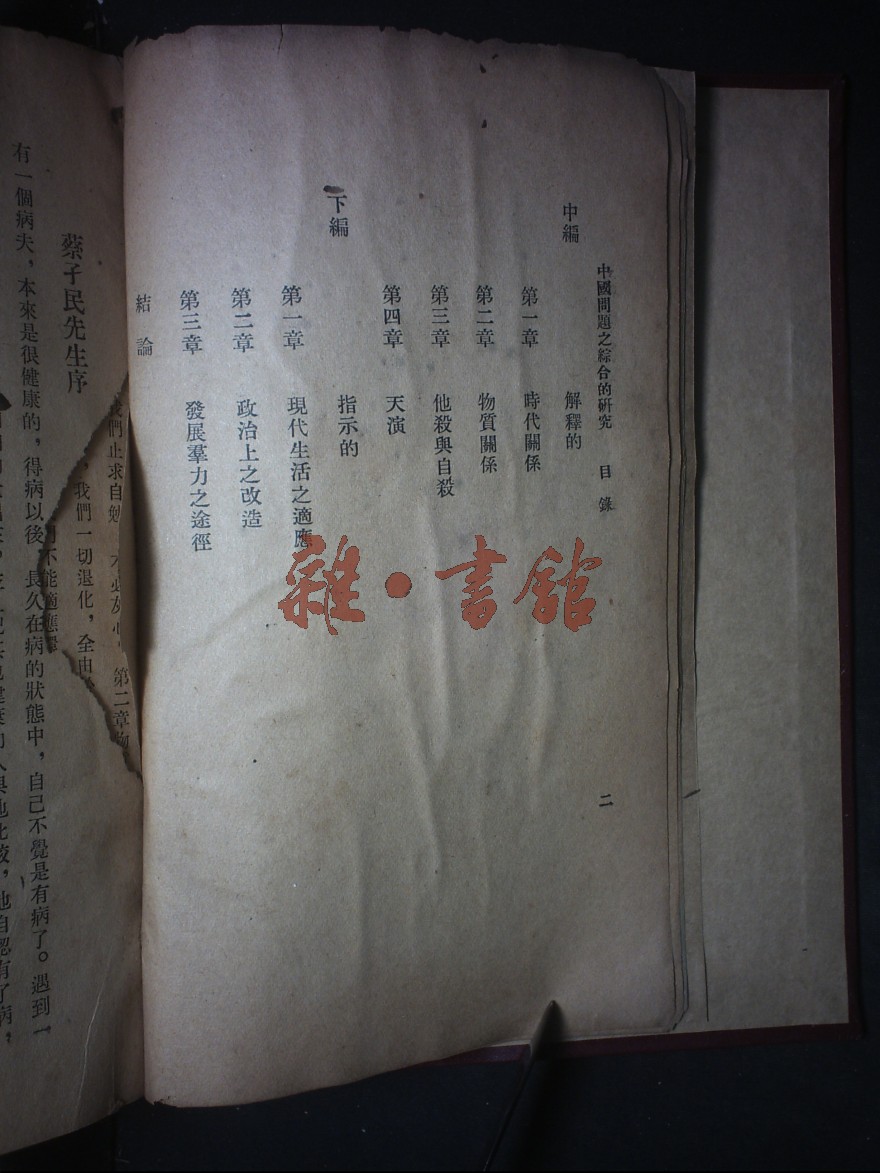 中國問題之綜合的研究 目錄 二
中編 解釋的
第一章 時代關係
第二章 物質關係
第三章 他殺與自殺
第四章 天演
下編 指示的
第一章 現代生活之適應
第二章 政治上之改造
第三章 發展羣力之途徑
結論
雜·書館
們止求自勉
第二章物
我們一切退化，全由
蔡子民先生序
不能適應環
有一個病夫，本來是很健康的，得病以後，長久在病的狀態中，自己不覺是有病了。遇到一
與他比較，他自認有了病，